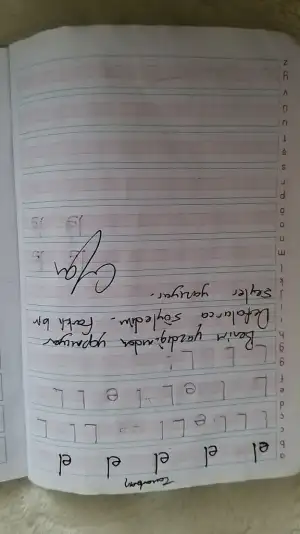 el el el el el
L L L e L L L L
L L e L L e L L
L L L
Benim yazdığımdan yapmıyor
Defalarca söyledim. Farklı bir
şeyler yazıyor.
a
b
c
ç
d
e
f
g
ğ
h
ı
i
j
k
l
m
n
o
ö
p
r
s
ş
t
u
ü
v
y
z